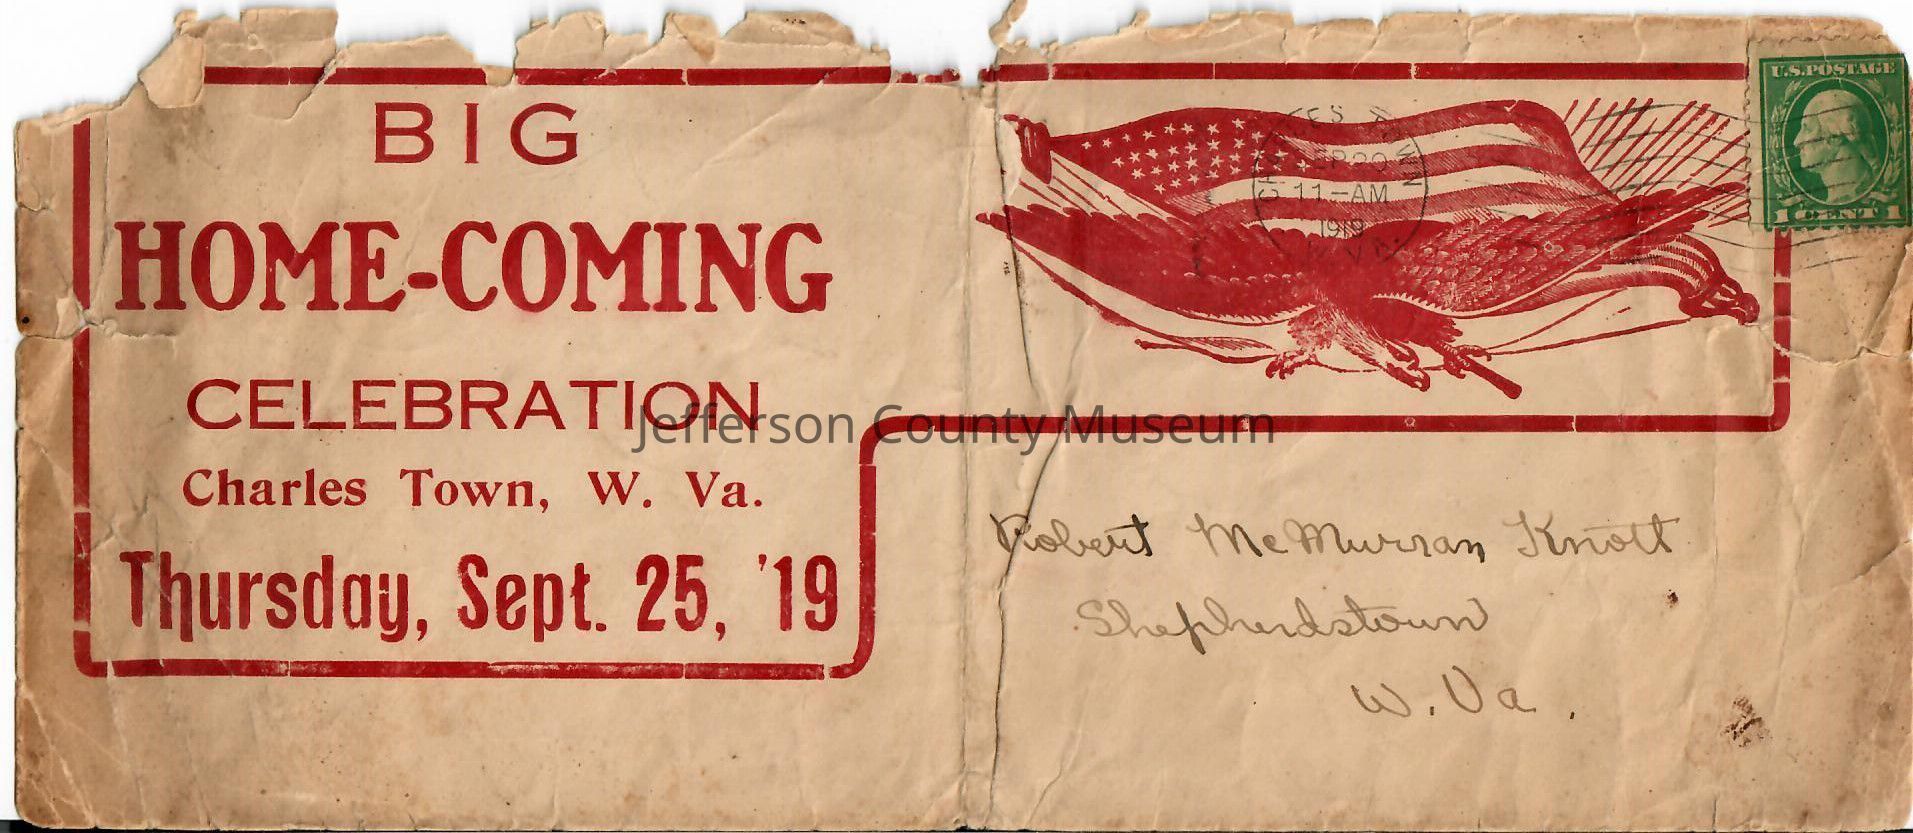 BIG
HOME-COMING
CELEBRATION
Charles Town, W. Va.
Thursday, Sept. 25, '19
CHARLES TOWN
SEP 20
11-AM
1919
W.VA.
U.S. POSTAGE
1 CENT 1
Jefferson County Museum
Robert McMurran Knott
Shepherdstown
W. Va.